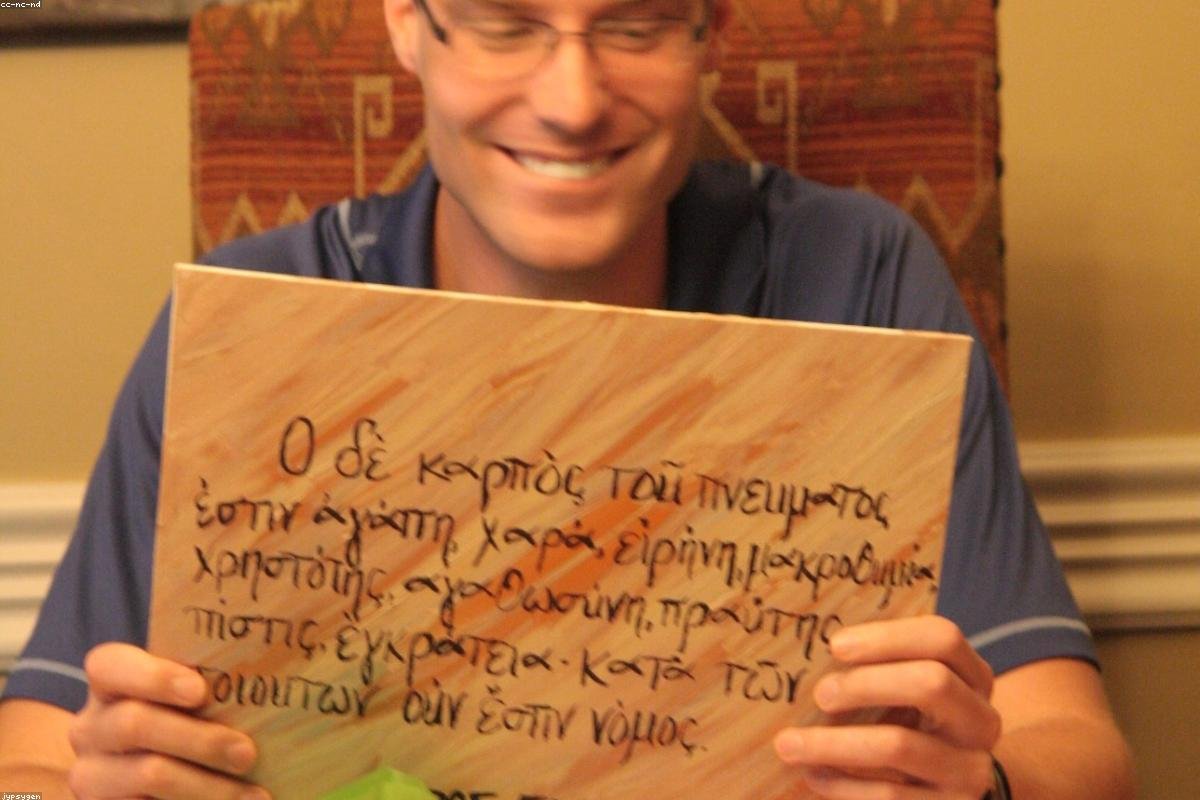 cc-nc-nd
Ο δὲ καρπὸς τοῦ πνευματος
ἐστιν ἀγάπη, χαρά, εἰρήνη, μακροθυμία,
χρηστότης, αγαθωσύνη, πραΰτης
πίστις, ἐγκράτεια· κατὰ τῶν
τοιουτων οὐν ἔστιν νόμος.
jypsygen